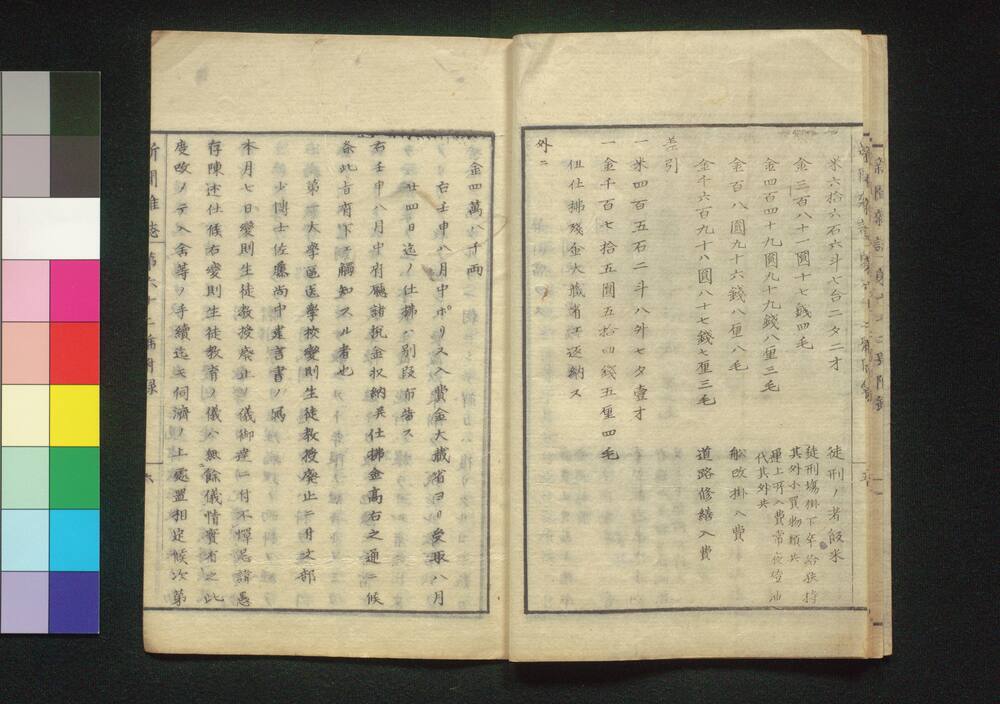 米六拾六石六斗七合二夕二才　徒刑ノ者飯米
金三百八十一圓十七銭四毛　徒刑場掛下年給扶持
其外小買物類共
金四百四十九圓九十九銭八厘三毛　運上所入費常夜燈油
代其外共
金百八圓九十六銭八厘八毛　船改掛入費
金千六百九十八圓八十七銭七厘三毛　道路修繕入費
差引
一米四百五石二斗八升七夕壹才
一金千百七拾五圓五拾四銭五厘四毛
但仕拂残金大藏省江返納ス
外ニ
金四萬八千両
右壬申八月中ポリス入費金大藏省ヨリ受取八月
廿四日迄ノ仕拂ハ別段布告ス
右壬申八月中府廳諸税金収納并仕拂金高右之通ニ候
条此旨府下ニ觸知スル者也
第一大學區医學校變則生徒教授廃止ニ付文部
少博士佐藤尚中建言書ノ寫
本月七日變則生徒教授廃止ノ儀御達ニ付不憚忌諱愚
存陳述仕候右變則生徒教育ノ儀ハ無餘儀情實有之此
度改メテ入舎等ノ手續迄モ伺済ノ上處置相定候次第
新聞雑誌　第六十二号附録　六